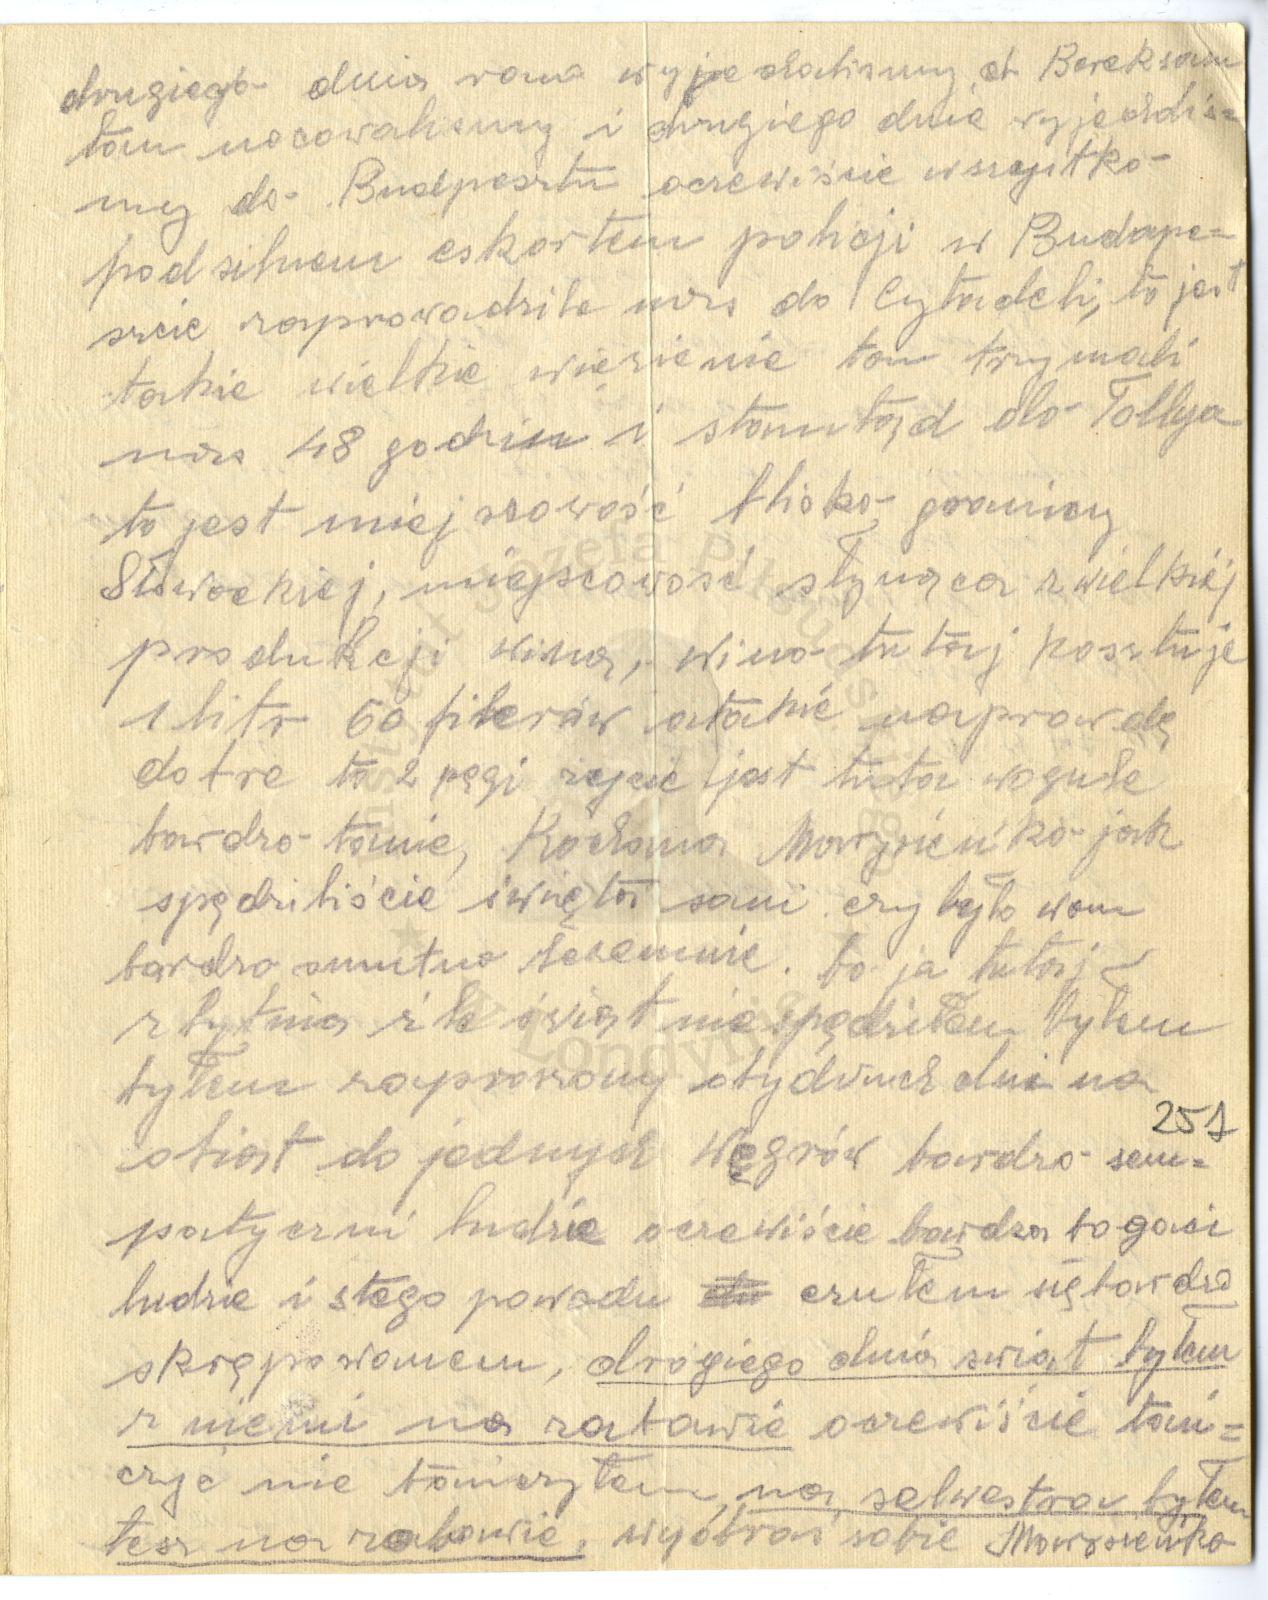 drugiego dnia rano wyjechalismy do Bereksasu
tam nocowalismy i drugiego dnia wyjezdlis=
my do Budpesztu oczewiście wszystko
pod silnem eskortem policji w Budape=
szcie zaprowadzile nas do Cytadeli, to jest
takie wielkie więzienie tam trzymali
nas 48 godzin i stamtąd do Tollya
to jest miejszowość bliko granicy
Słowackiej, miejscowość słynąca z wielkiej
produkcji wina, wino tutaj kosztuje
1 litr 60 filerów atakie naprawdę
dobre to 2 pęgi życie jest tutaj wogule
bardzo tanie, Kochana Marysieńko jak
spędziliście święta sami czy było wam
bardzo smutno bezemnie. bo ja tutaj
zbytnio źle świąt nie spędziłem byłem
byłem zaproszony obydwuch dni na
obiat do jednych Węgrów bardzo sem=
251
patyczni ludzie oczewiście bardzo bogaci
ludzie i stego powodu czułem się bardzo
skrępowanem, drogiego dnia swiąt byłem
z niemi na zabawie oczewiście tań=
czyć nie tańczyłem, na selwestra byłem
tesz na zabawie, wyobraś sobie Marysieńko
Instytut Józefa Piłsudskiego
w Londynie